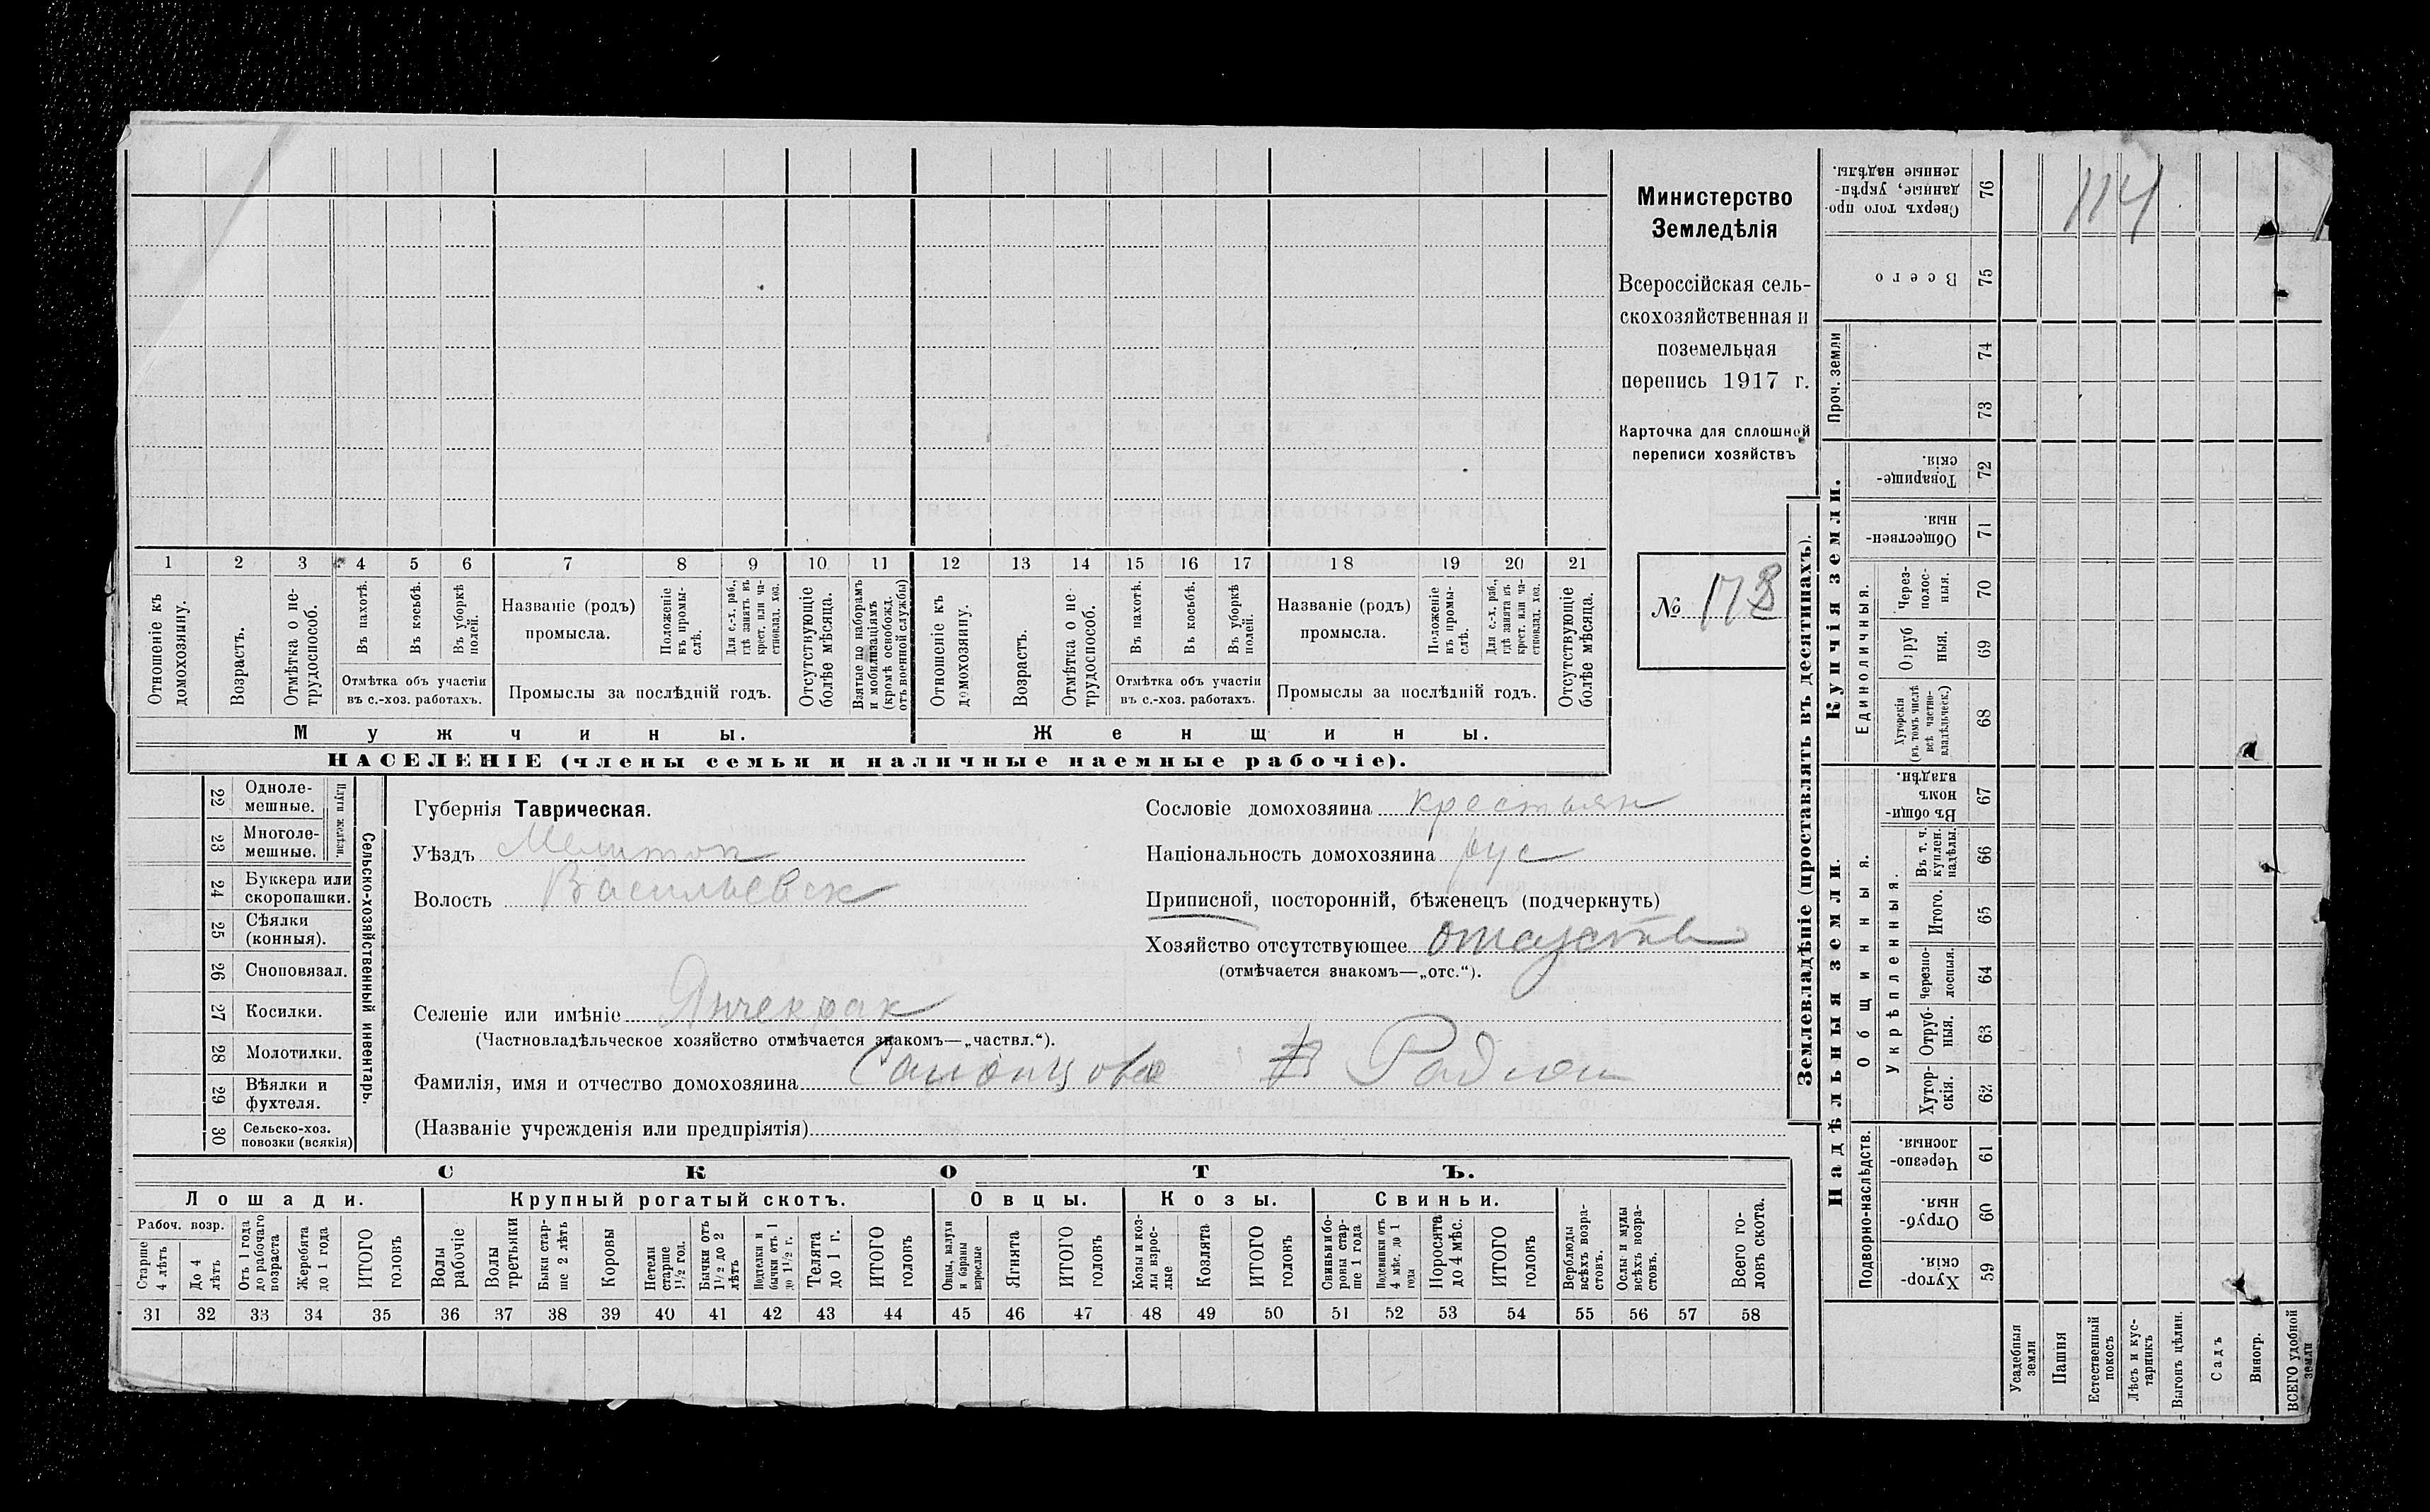 Министерство
Земледѣлія
Всероссійская сель-
скохозяйственная и
поземельная
перепись 1917 г.
Карточка для сплошной
переписи хозяйствъ
№ 173
1 2 3 4 5 6 7 8 9 10 11 12 13 14 15 16 17 18 19 20 21
Отношеніе къ домохозяину.
Возрастъ.
Отмѣтка о не-трудоспособ.
Въ пахотѣ.
Въ косьбѣ.
Въ уборкѣ полей.
Отмѣтка объ участіи
въ с.-хоз. работахъ.
Названіе (родъ)
промысла.
Положеніе въ промы-слѣ.
Для с.-х. раб., гдѣ занятъ въ крест. или ча-стновлад. хоз.
Промыслы за послѣдній годъ.
Отсутствующіе болѣе мѣсяца.
Взятые по наборамъ и мобилизаціямъ (кромѣ освобожд. отъ военной службы)
Отношеніе къ домохозяину.
Возрастъ.
Отмѣтка о не-трудоспособ.
Въ пахотѣ.
Въ косьбѣ.
Въ уборкѣ полей.
Отмѣтка объ участіи
въ с.-хоз. работахъ.
Названіе (родъ)
промысла.
Положеніе въ промы-слѣ.
Для с.-х. раб., гдѣ занята въ крест. или ча-стновлад. хоз.
Промыслы за послѣдній годъ.
Отсутствующіе болѣе мѣсяца.
Мужчины.
Женщины.
НАСЕЛЕНІЕ (члены семьи и наличные наемные рабочіе).
22 Одноле-
мешные.
23 Многоле-
мешные.
Плуги желѣзн.
24 Буккера или
скоропашки.
25 Сѣялки
(конныя).
26 Сноповязал.
27 Косилки.
28 Молотилки.
29 Вѣялки и
фухтеля.
30 Сельско-хоз.
повозки (всякія)
Сельско-хозяйственный инвентарь.
Губернія Таврическая.
Уѣздъ Мелитоп
Волость Васильевск
Сословіе домохозяина крестьян
Національность домохозяина рус
Приписной, посторонній, бѣженецъ (подчеркнуть)
Хозяйство отсутствующее
(отмѣчается знакомъ—„отс.“).
Селеніе или имѣніе Янчекрак
(Частновладѣльческое хозяйство отмѣчается знакомъ—„частвл.“).
Фамилія, имя и отчество домохозяина Радион
(Названіе учрежденія или предпріятія)
СКОТЪ.
Лошади.
Крупный рогатый скотъ.
Овцы.
Козы.
Свиньи.
Рабоч. возр.
Старше 4 лѣтъ
До 4 лѣтъ
Отъ 1 года до рабочаго возраста
Жеребята до 1 года
ИТОГО головъ
Волы рабочіе
Волы третьяки
Быки стар-ше 2 лѣтъ
Коровы
Нетели старше 1½ год.
Бычки отъ 1½ до 2 лѣтъ
Подтелки и бычки отъ 1 до 1½ г.
Телята до 1 г.
ИТОГО головъ
Овцы, валухи и бараны взрослые
Ягнята
ИТОГО головъ
Козы и коз-лы взрос-лые
Козлята
ИТОГО головъ
Свиньи и бо-ровы стар-ше 1 года
Подсвинки отъ 4 мѣс. до 1 года
Поросята до 4 мѣс.
ИТОГО головъ
Верблюды всѣхъ возра-стовъ.
Ослы и мулы всѣхъ возра-стовъ.
Всего го-ловъ скота.
31 32 33 34 35 36 37 38 39 40 41 42 43 44 45 46 47 48 49 50 51 52 53 54 55 56 57 58
Землевладѣніе (проставлять въ десятинахъ).
Сверхъ того про-данные, укрѣп-ленные надѣлы. 76
114
Всего 75
Проч. земли
74
73
Купчія земли.
Товарище-скія. 72
Обществен-ныя. 71
Единоличныя.
Через-полос-ныя. 70
Отруб ныя. 69
Хуторскія (въ томъ числѣ всѣ частно-владѣльческ.) 68
Надѣльныя земли.
Общинныя.
Въ общин-номъ владѣн. 67
Укрѣпленныя.
Въ т. ч. куплен. надѣлы. 66
Итого. 65
Черезпо-лосныя. 64
Отруб-ныя. 63
Хутор-скія. 62
Подворно-наслѣдств.
Черезпо-лосныя. 61
Отруб-ныя. 60
Хутор-скія. 59
Усадебныя земли
Пашня
Естественный покосъ
Лѣсъ и кус-тарникъ
Выгонъ цѣлин.
Садъ
Виногр.
ВСЕГО удобной земли